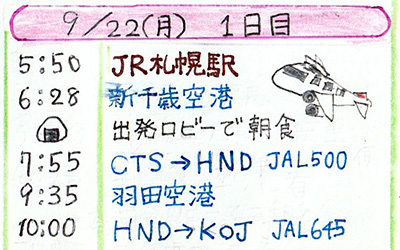 9/22(月) 1日目
5:50 JR札幌駅
6:28 新千歳空港
出発ロビーで朝食
7:55 CTS→HND JAL500
9:35 羽田空港
10:00 HND→KOJ JAL645